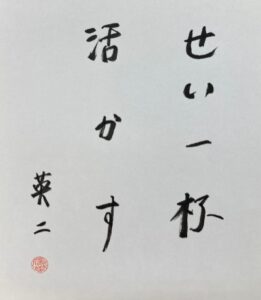 せい一杯
活かす
英二